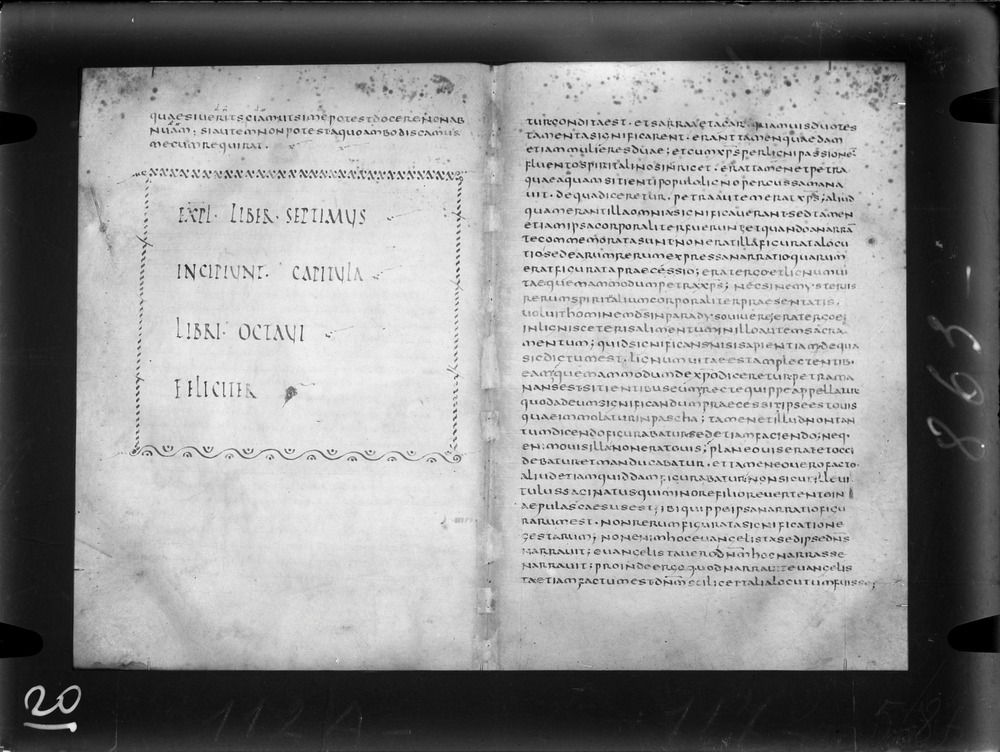 quaesiueritsciamutsimepotestdocerenonab
nuam; siautemnonpotestaquoambodiscamus
mecumrequirat.
EXPL· LIBER· SEPTIMUS
INCIPIUNT· CAPITULA
LIBRI· OCTAUI
FELICITER
turconditaest· etsarraetacar quamuisduotes
tamentasignificarent· eranttamenquaedam
etiammulieresduae; etcumxp̄sperlignipassione
fluentospiritalinosinriget· erattamenetpetra
quaeaquamsitientipopulolignopercussamana
uit· dequadiceretur· petraauteratxp̄s; aliud
quamerantillaomniasignificauerantsedtamen
etiamipsacorporaliterfueruntetquandoanarran
tecommemoratasuntnoneratillafigurata locu
tiosedearumrerumexpressanarratioquarum
eratfigurata praecessio; eratergoetlignumui
taequemammodumpetraxp̄s; necsinemysteriis
rerumspiritaliumcorporaliterpraesentatis·
uoluithominemd̄sinparadysouiuere; eratergoei
inlignisceterisalimentuminilloautemsacra
mentum; quidsignificansnisisapientiamdequa
sicdictumest· lignumuitaeestamplectentib·
eamquemammodumdexp̄odicereturpetrama
nansestsitientibuseum; rectequippeappellatur
quodadeumsignificandumpraecessitipseestouis
quaeimmolaturinpascha; tamenetilludnontan
tumdicendofigurabatursedetiamfaciendo; neq·
enimouisillanoneratouis; planeouiseratetocci
debaturetmanducabatur· ettamenouerofacto
aliudetiamquiddamfigurabatur; nonsicutilleui
tulussaginatusquiminorefilioreuertentein
aepulascaesusest; ibiquippeipsanarratiofigu
rarumest· nonrerumfiguratasignificatione
gestarum; nonenimhoceuangelistasedipsed̄ns
narrauit; euangelistauerod̄nmhocnarrasse
narrauit; proindeergoquodnarrauiteuangelis
taetiamfactumestd̄nmscilicettalialocutumfuisse;
863
20